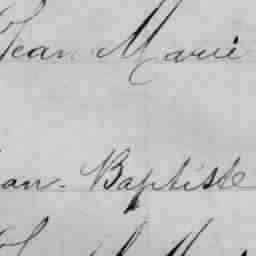 Jean Marie
an-Baptiste